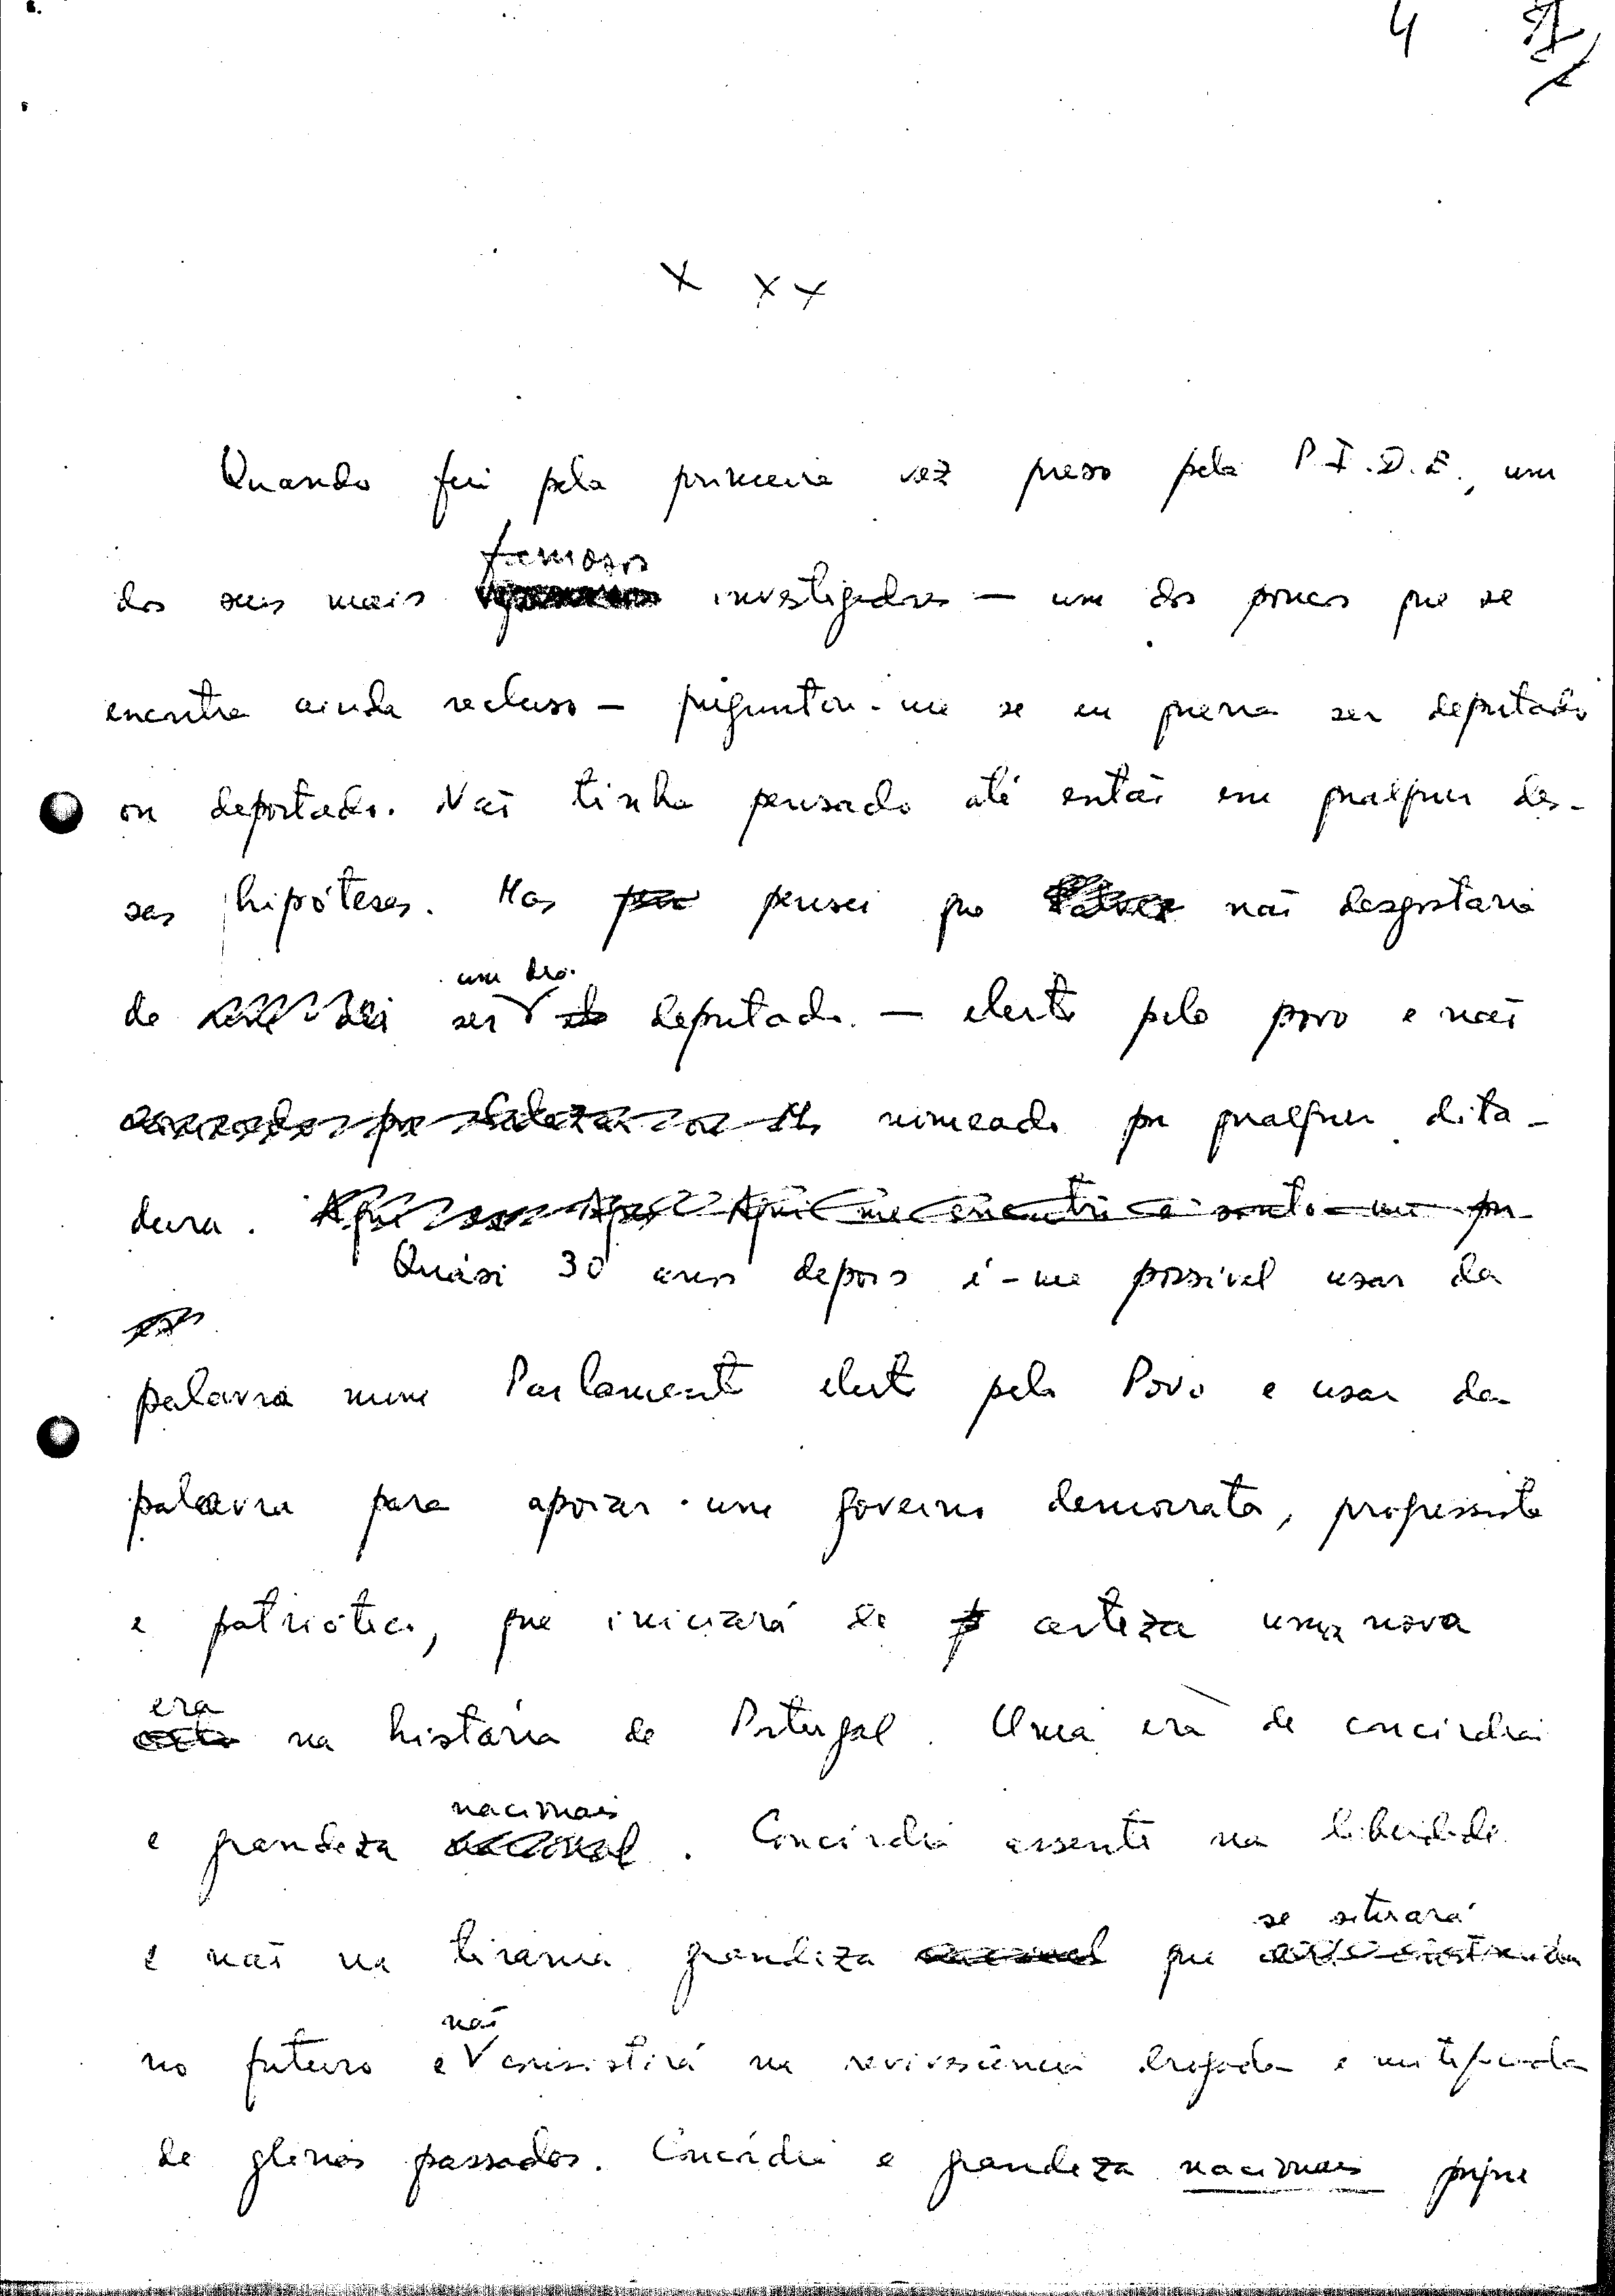 4
x xx
Quando fui pela primeira vez preso pela P.I.D.E., um
famosos
dos seus mais investigadores — um dos poucos que se
encontra ainda recluso — preguntou-me se eu queria ser deputado
ou deportado. Não tinha pensado até então em qualquer des-
sas hipóteses. Mas pensei que não desgostaria
um dia
de ser deputado — eleito pelo povo e não
nomeado por qualquer dita-
dura. Aqui me encontro e sinto-me por
Quási 30 anos depois é-me possível usar da
palavra num Parlamento eleito pelo Povo e usar da
palavra para apoiar um governo democrata, progressista
e patriótico, que iniciará de certeza uma nova
era
na história de Portugal. Uma era de concórdia
nacionais
e grandeza nacional. Concórdia assente na liberdade
se situará
e não na tirania grandeza nacional que
não
no futuro e consistirá na revivescência e mitificada
de glórias passadas. Concórdia e grandeza nacionais porque